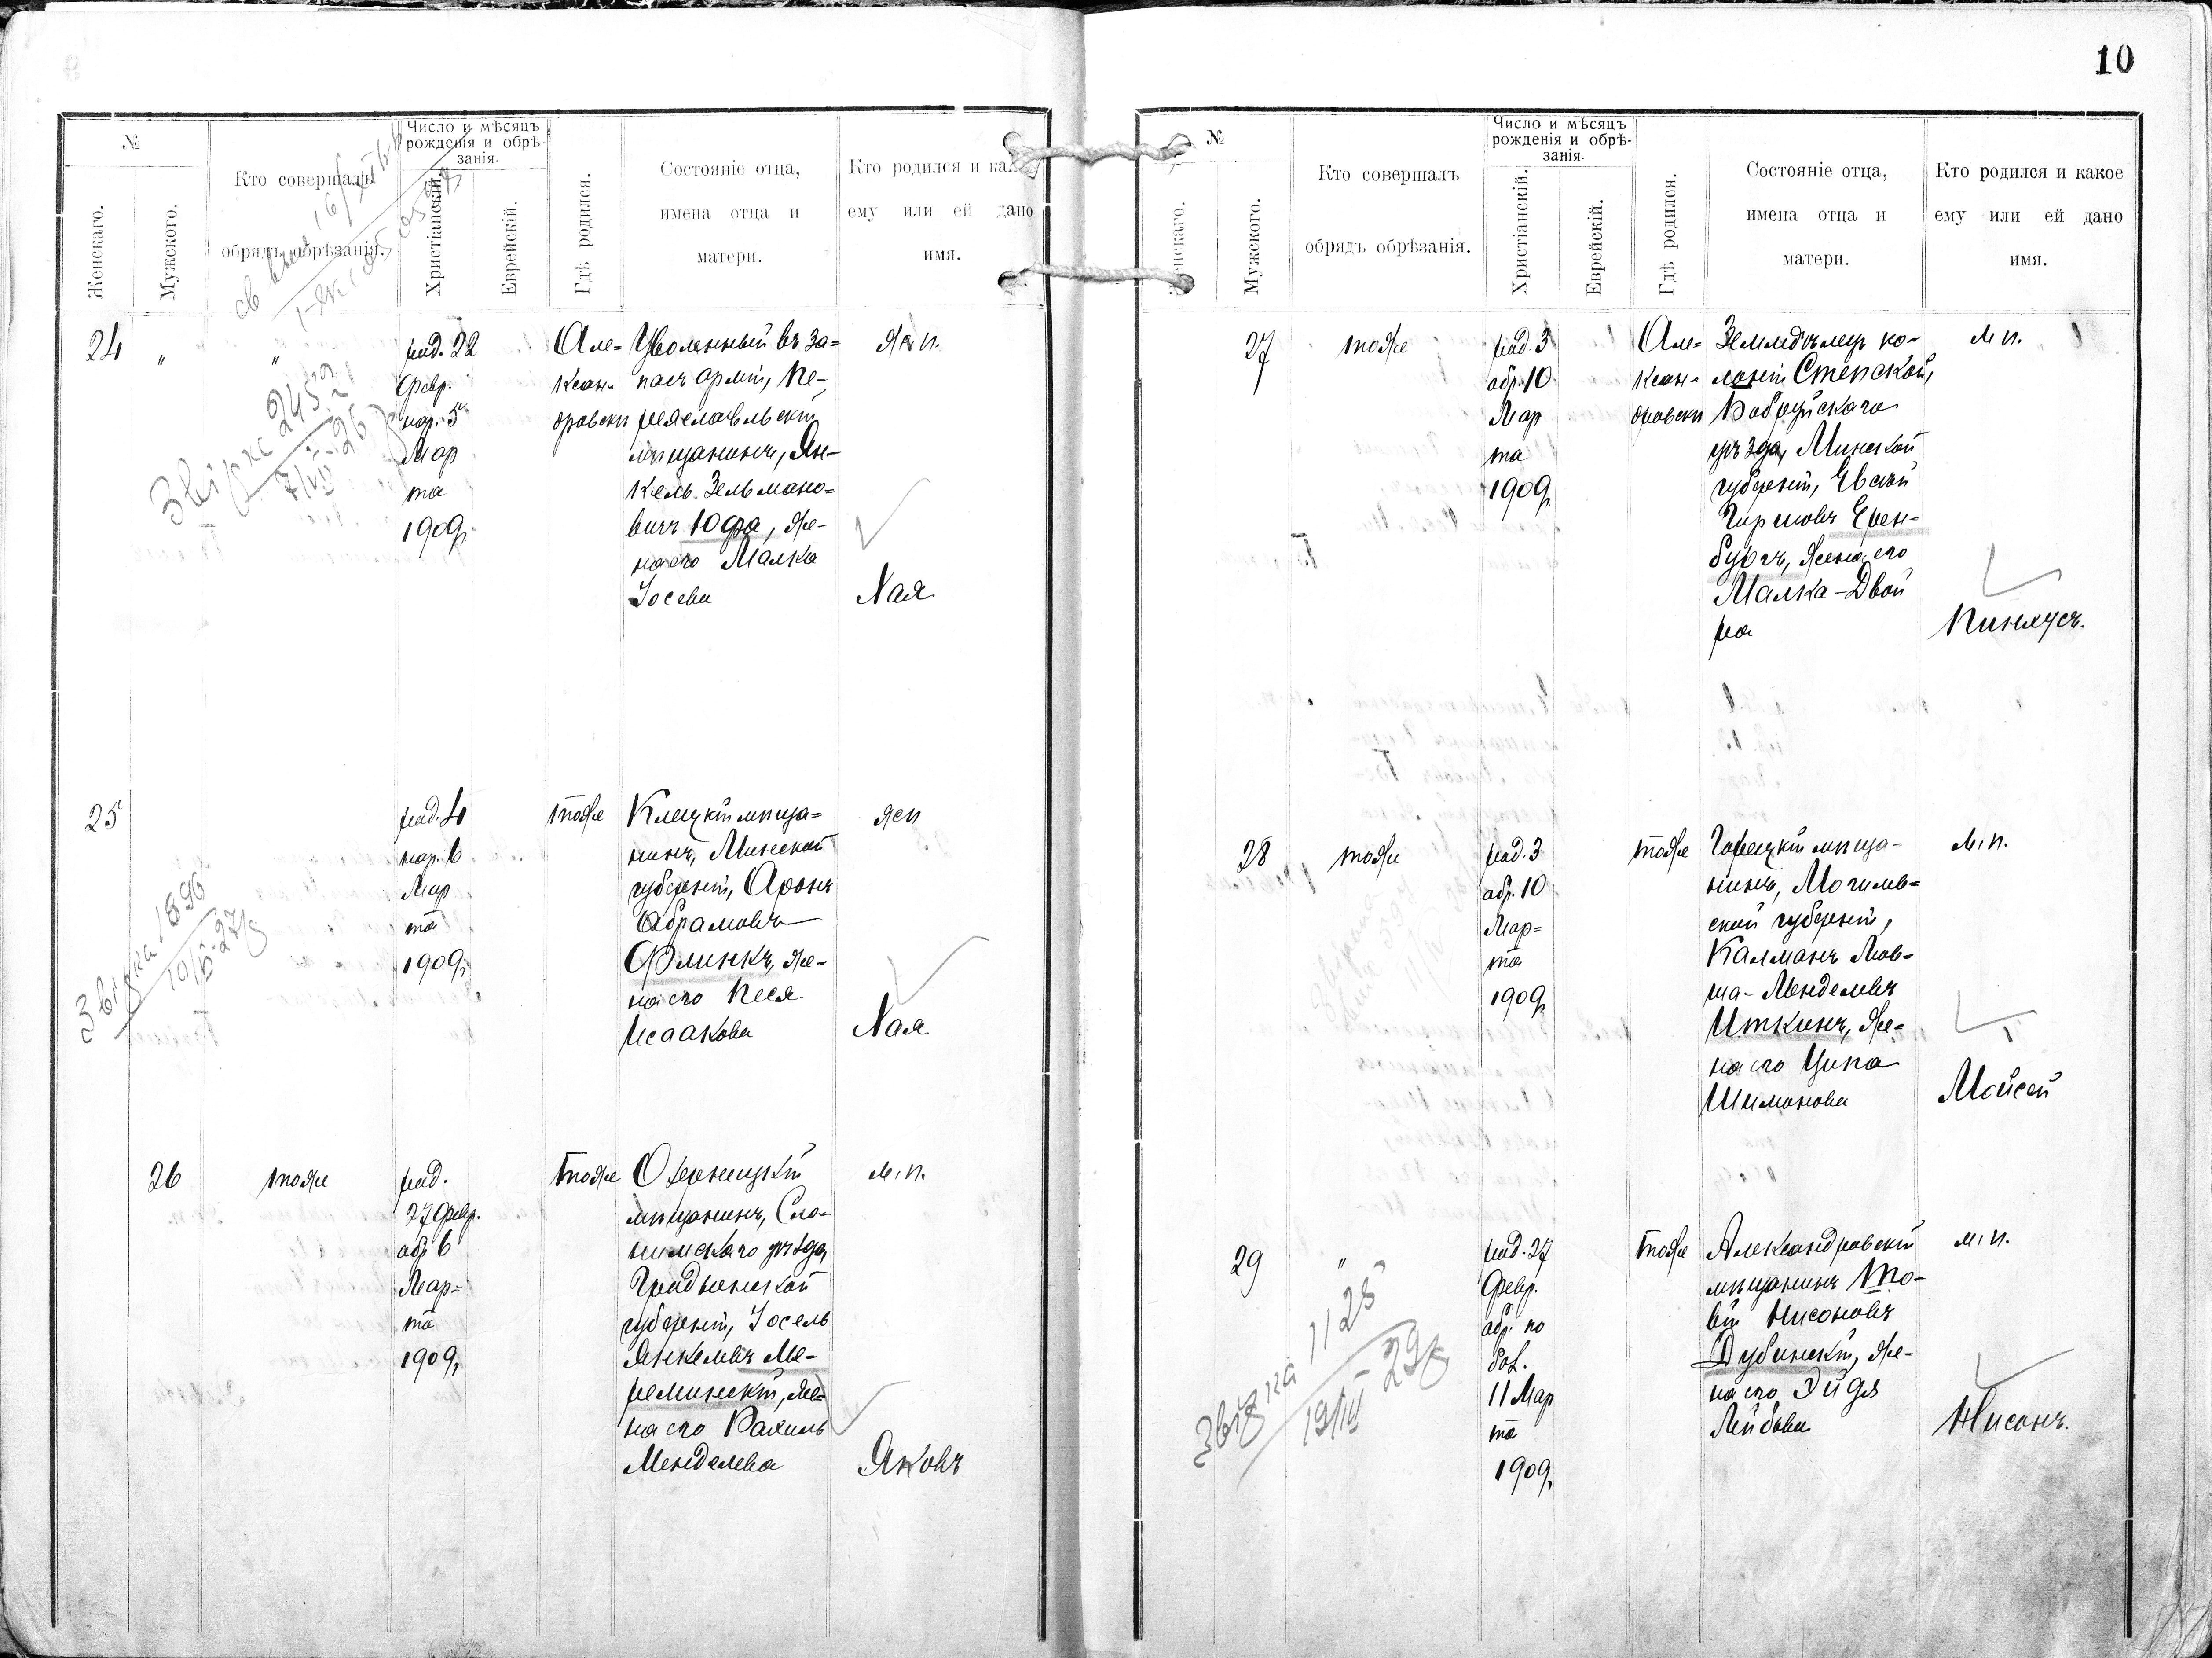 10
№
Женскаго.
Мужского.
Кто совершалъ
обрядъ обрѣзанія.
Число и мѣсяцъ
рожденія и обрѣ-
занія.
Христіанскій.
Еврейскій.
Гдѣ родился.
Состояніе отца,
имена отца и
матери.
Кто родился и как
ему или ей дано
имя.
24 " "
род. 22
Февр.
нар. 5
Мар
та
1909 г.
Але=
ксан-
дровскъ
Уволенный въ за=
пасъ арміи, Пе-
реяславльскій
мѣщанинъ, Ян-
кель Зельмано=
вичъ Юфа, же-
на его Малка
Іосева
Жен п.
Хая
Звірка 2452
25
род. 4
нар. 6
Мар
та
1909 г.
тоже
Клецкій мѣща=
нинъ, Минской
губерніи, Аронъ
Абрамовъ
Флинкъ, же-
на его Песя
Исаакова
жен
Хая
Звірка 1896
26
тоже
род.
27 Февр.
обр 6
Мар=
та
1909 г.
тоже
мѣщанинъ, Сло-
нимскаго уѣзда,
Гродненской
губерніи, Іосель
Янкелевъ Ме-
реминскій, же=
на его Рахиль
Менделева
м. п.
Яковъ
№
Мужского.
Кто совершалъ
обрядъ обрѣзанія.
Число и мѣсяцъ
рожденія и обрѣ-
занія.
Христіанскій.
Еврейскій.
Гдѣ родился.
Состояніе отца,
имена отца и
матери.
Кто родился и какое
ему или ей дано
имя.
27
тоже
род. 3
обр. 10
Мар
та
1909 г.
Але=
ксан=
дровскъ
Земледѣлецъ ко-
лоніи Степской,
Бобруйскаго
уѣзда, Минской
губерніи, Евсей
Гиршовъ Ерен-
бургъ, жена его
Малка-Двой
ра
м п.
Пинхусъ.
28
тоже
род. 3
обр. 10
Мар=
та
1909 г.
тоже
Горецкій мѣща-
нинъ, Могилев=
ской губерніи,
Калманъ Мов-
ша-Менделевъ
Иткинъ, же=
на его Ципа
Шимонова
м. п.
Мойсей
29 "
род. 27
Февр.
обр. по
бол.
11 Мар
та
1909 г.
тоже
Александровскій
мѣщанинъ То-
вій Нисоновъ
Дубинскій, же-
на его Эйдя
Лейбова
м. п.
Нисонъ.
Звірка 1128